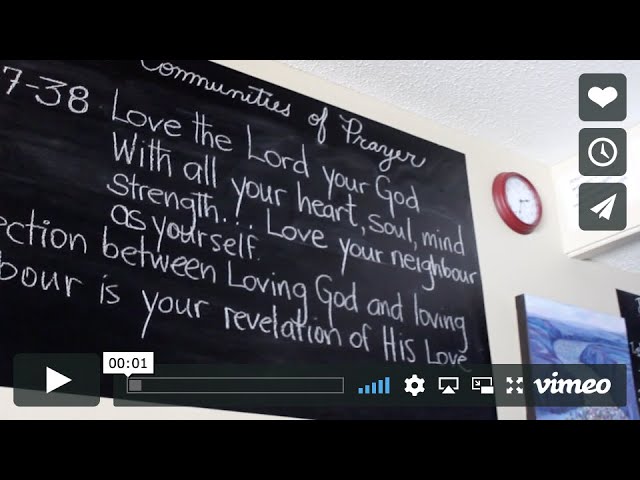 Communities of Prayer
7-38 Love the Lord your God
With all your heart, soul, mind
strength... Love your neighbour
as yourself.
ection between Loving God and loving
bour is your revelation of His Love
00:01
vimeo